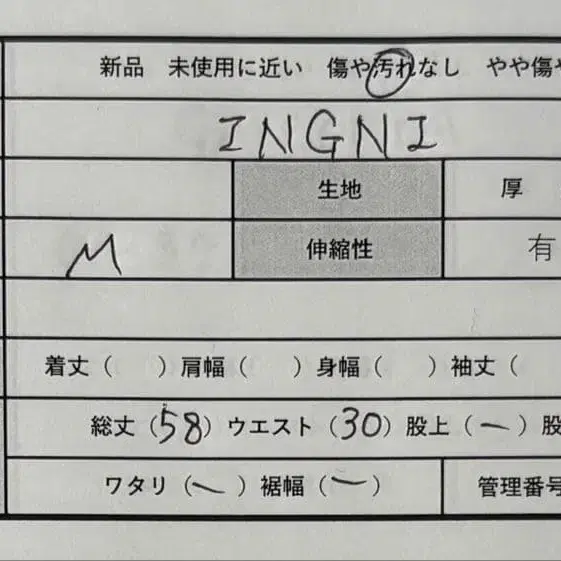 新品 未使用に近い 傷や汚れなし やや傷や
INGNI
生地 厚
M 伸縮性 有
着丈( )肩幅( )身幅( )袖丈(
総丈(58)ウエスト(30)股上(ー)股
ワタリ(ー)裾幅(ー) 管理番号